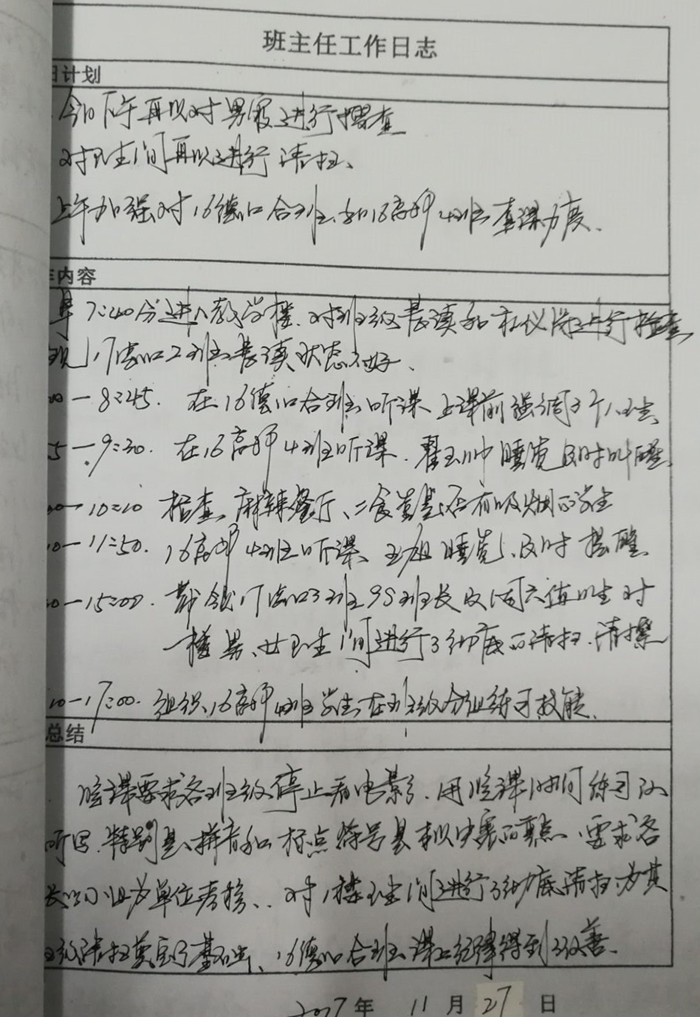 班主任工作日志
日计划
今日下午再次对男寝进行搜查
对卫生间再次进行清扫、
上午加强对16德口合班和16高护4班查课力度、
内容
早7:40分进入教学楼、对班级晨读和礼仪岗进行检查
现17 口2班晨读状态不好、
—8:45. 在16德口合班听课、上课前强调了个人卫生
5—9:30、在16高护4班听课、 睡觉及时叫醒
—10:10 检查麻辣餐厅、二食堂是否有吸烟的学生
10—11:50. 16高护4班听课、 睡觉、及时 醒
—15:00. 带领17 口3班 班长及周六值日生对
一楼男、女卫生间进行了彻底的清扫、清擦
10—17:00. 组织16高护4班学生在班级分组练习技能、
总结
晚课要求各班级停止看电影、用晚课时间练习
听写、特别是、拼音和标点符号是本次 的重点、要求各
长以小组为单位考核、、对1楼卫生间进行了彻底清扫、为其
级清扫奠定了基础、16德口合班课上纪律得到了改善、
2017年 11月27日